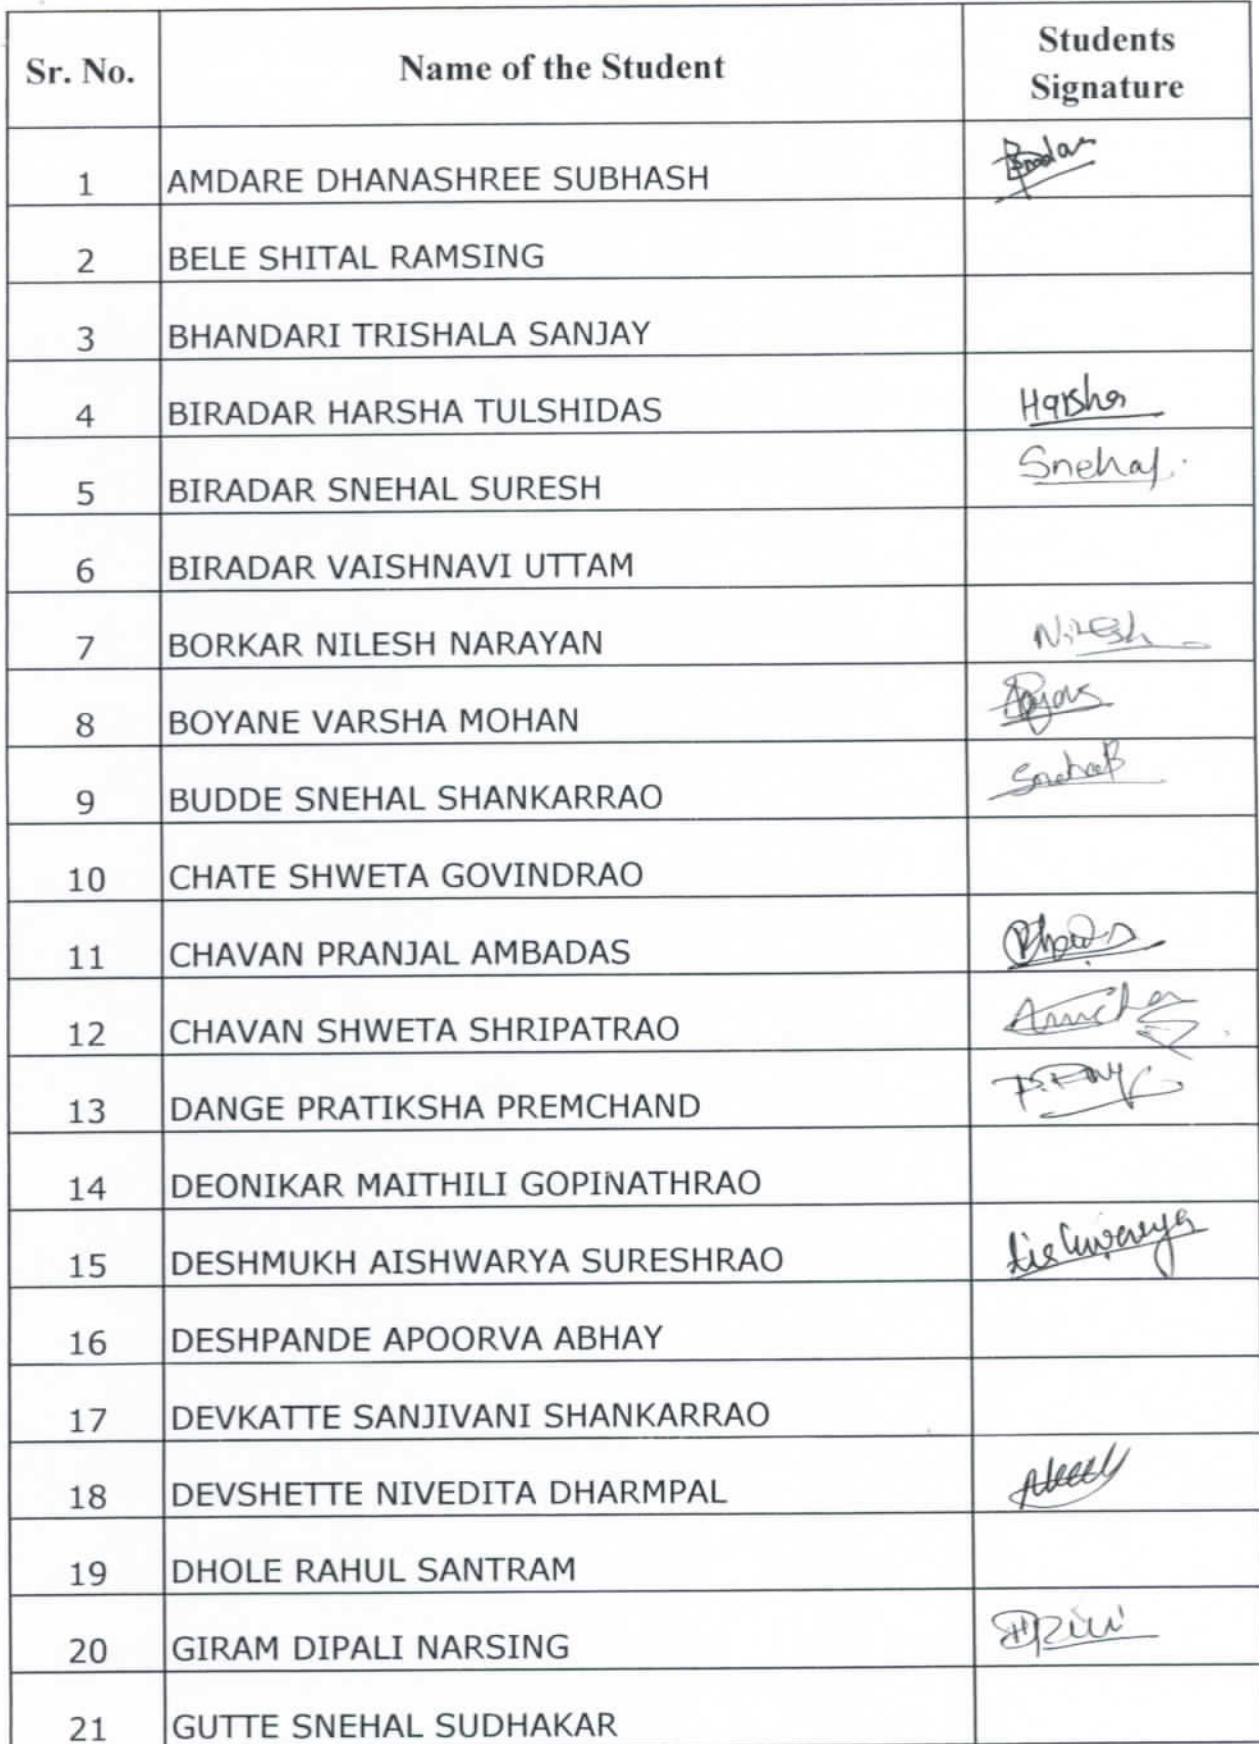 Sr. No. Name of the Student Students
Signature
1 AMDARE DHANASHREE SUBHASH
2 BELE SHITAL RAMSING
3 BHANDARI TRISHALA SANJAY
4 BIRADAR HARSHA TULSHIDAS Harsha
5 BIRADAR SNEHAL SURESH Snehal.
6 BIRADAR VAISHNAVI UTTAM
7 BORKAR NILESH NARAYAN Nilesh
8 BOYANE VARSHA MOHAN
9 BUDDE SNEHAL SHANKARRAO
10 CHATE SHWETA GOVINDRAO
11 CHAVAN PRANJAL AMBADAS
12 CHAVAN SHWETA SHRIPATRAO
13 DANGE PRATIKSHA PREMCHAND
14 DEONIKAR MAITHILI GOPINATHRAO
15 DESHMUKH AISHWARYA SURESHRAO
16 DESHPANDE APOORVA ABHAY
17 DEVKATTE SANJIVANI SHANKARRAO
18 DEVSHETTE NIVEDITA DHARMPAL
19 DHOLE RAHUL SANTRAM
20 GIRAM DIPALI NARSING
21 GUTTE SNEHAL SUDHAKAR